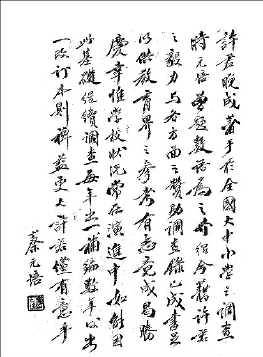 許君晚成著手於全國大中小學之調查
時元培曾題數語為之介紹今藉許君
之毅力与各方面之贊助調查錄已成書足
以供教育界之參考有志竟成曷勝
慶幸惟學校狀況常在演進中如能因
此基礎繼續調查每年出一補編數年必出
一改訂本則裨益更大許君僅有意乎
蔡元培